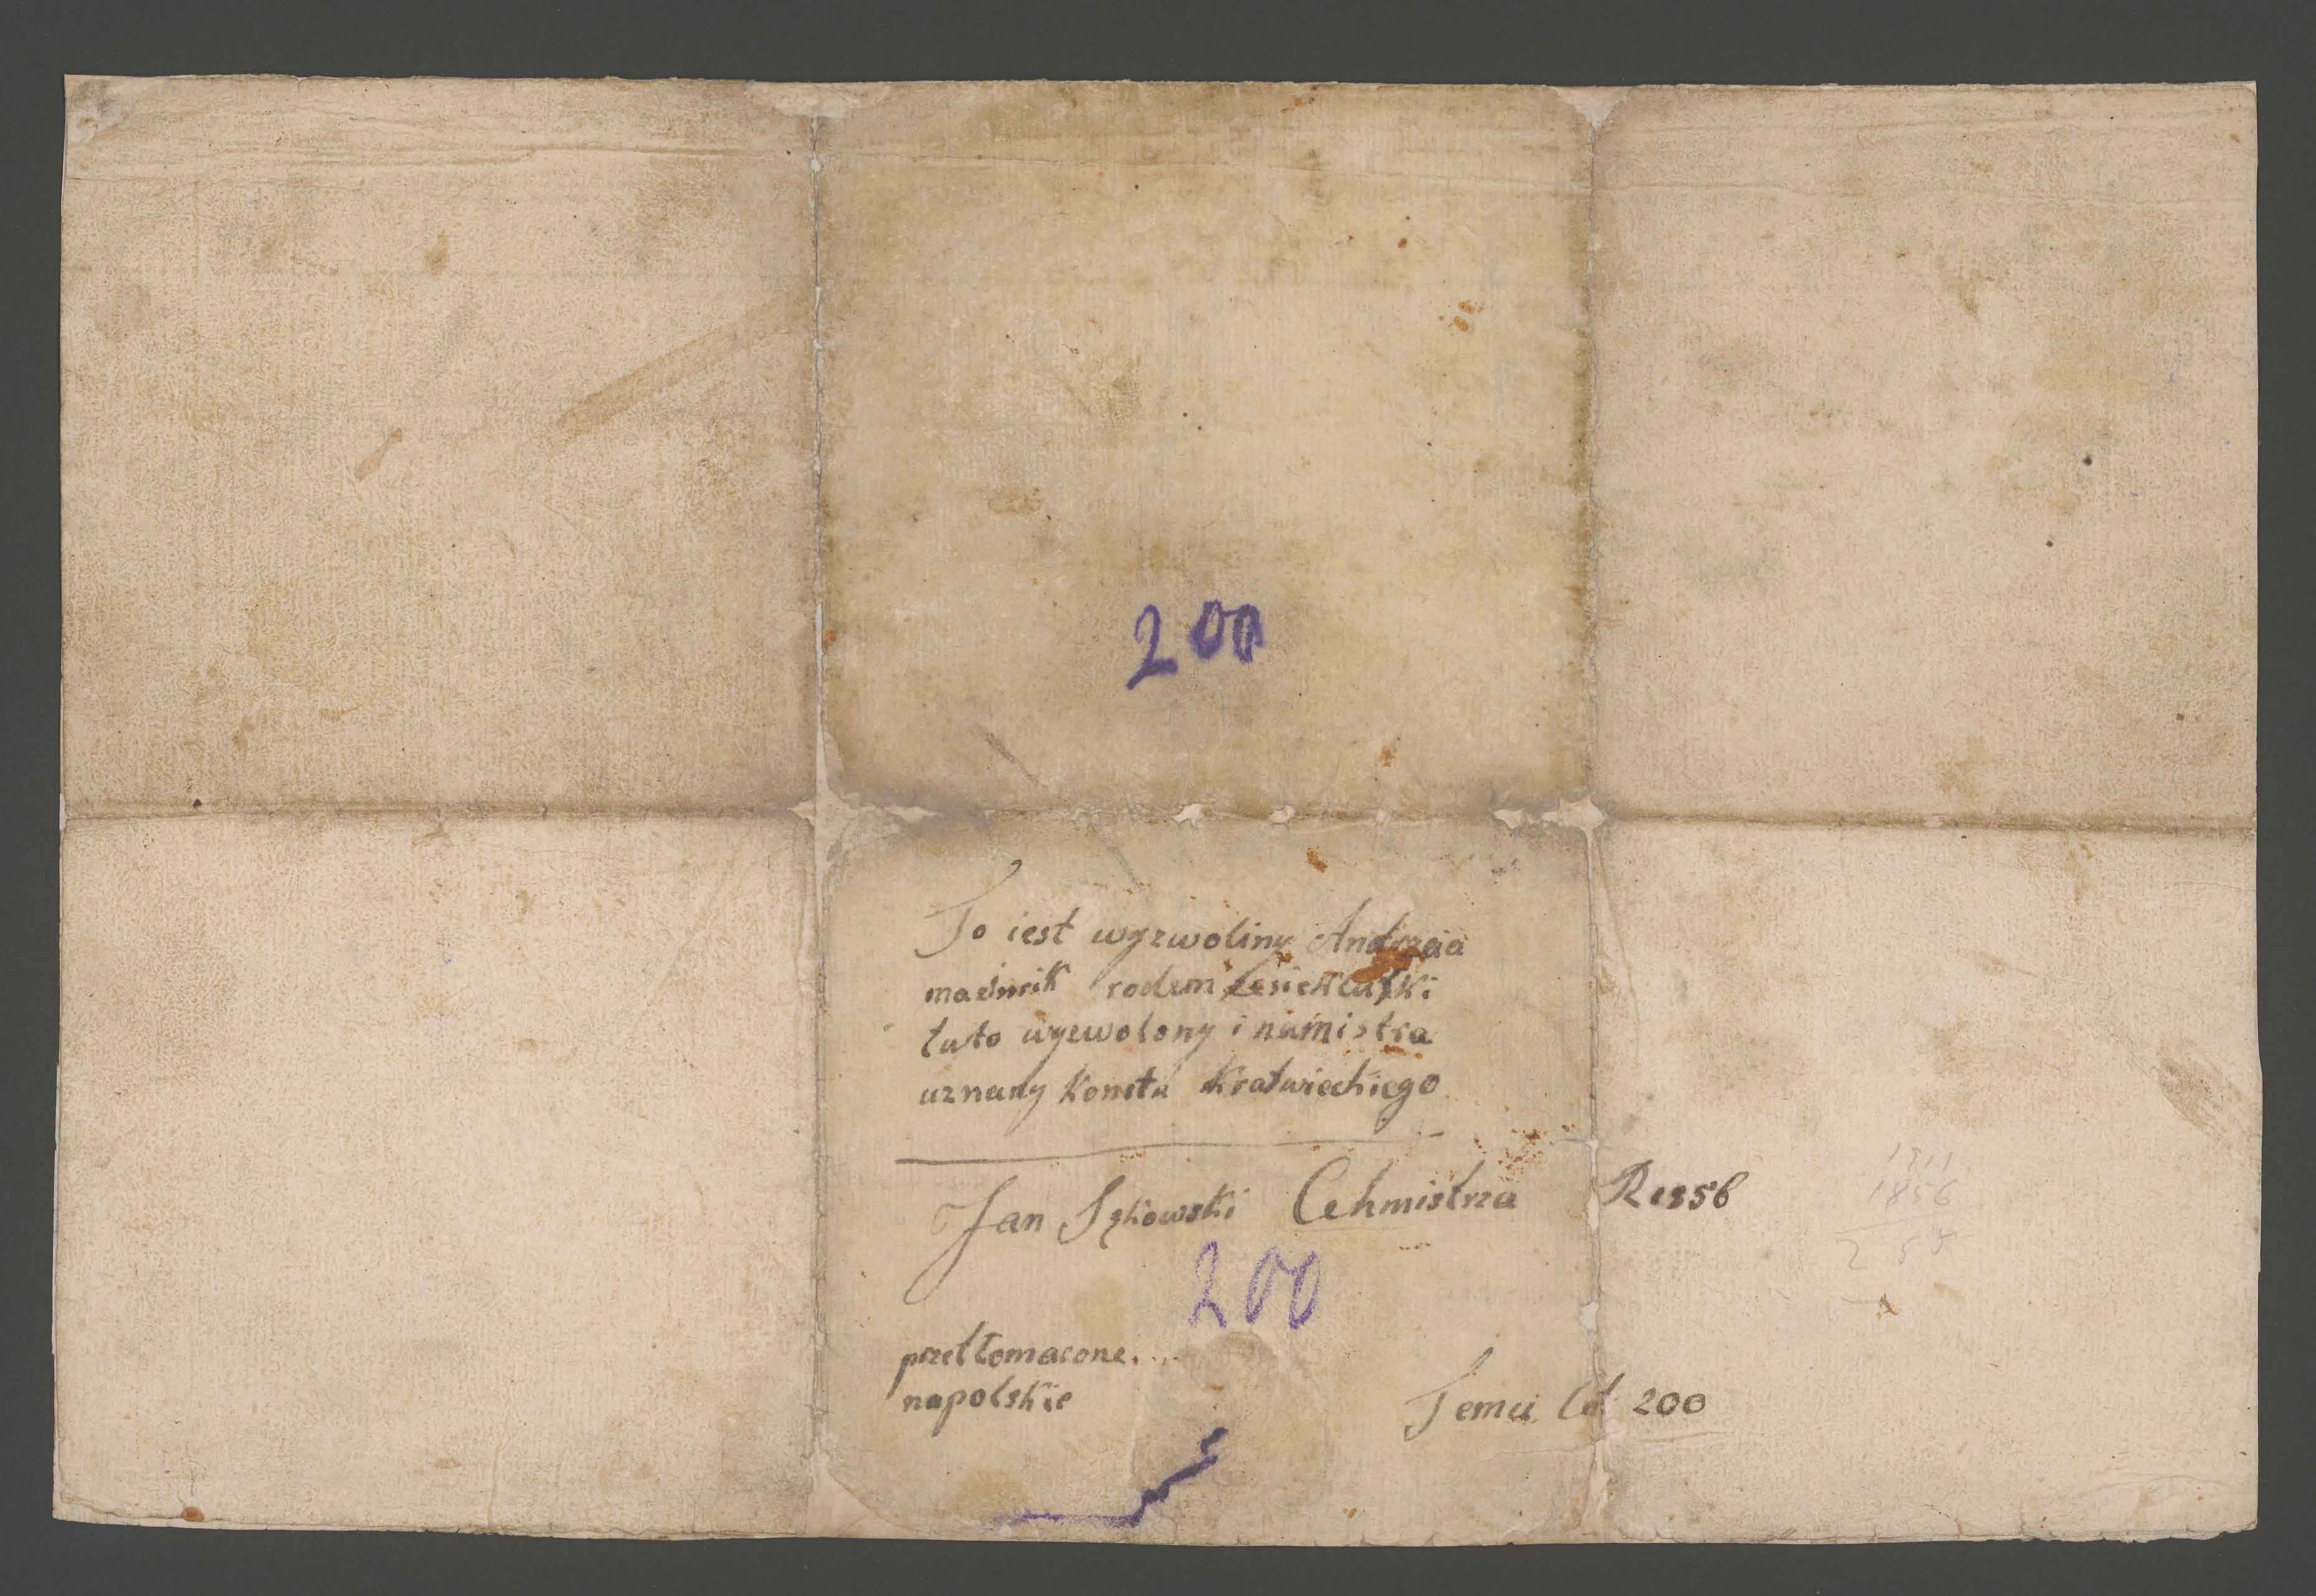 200
To iest wyzwoliny Andrzeia
rodem
tuto wyzwolony i namistra
uznany Konstu Kratwiechiego
Jan Sękowski Cehmistrza R 1856
1911
1856
200
przetłomacone...
napolskie
Temu lat 200